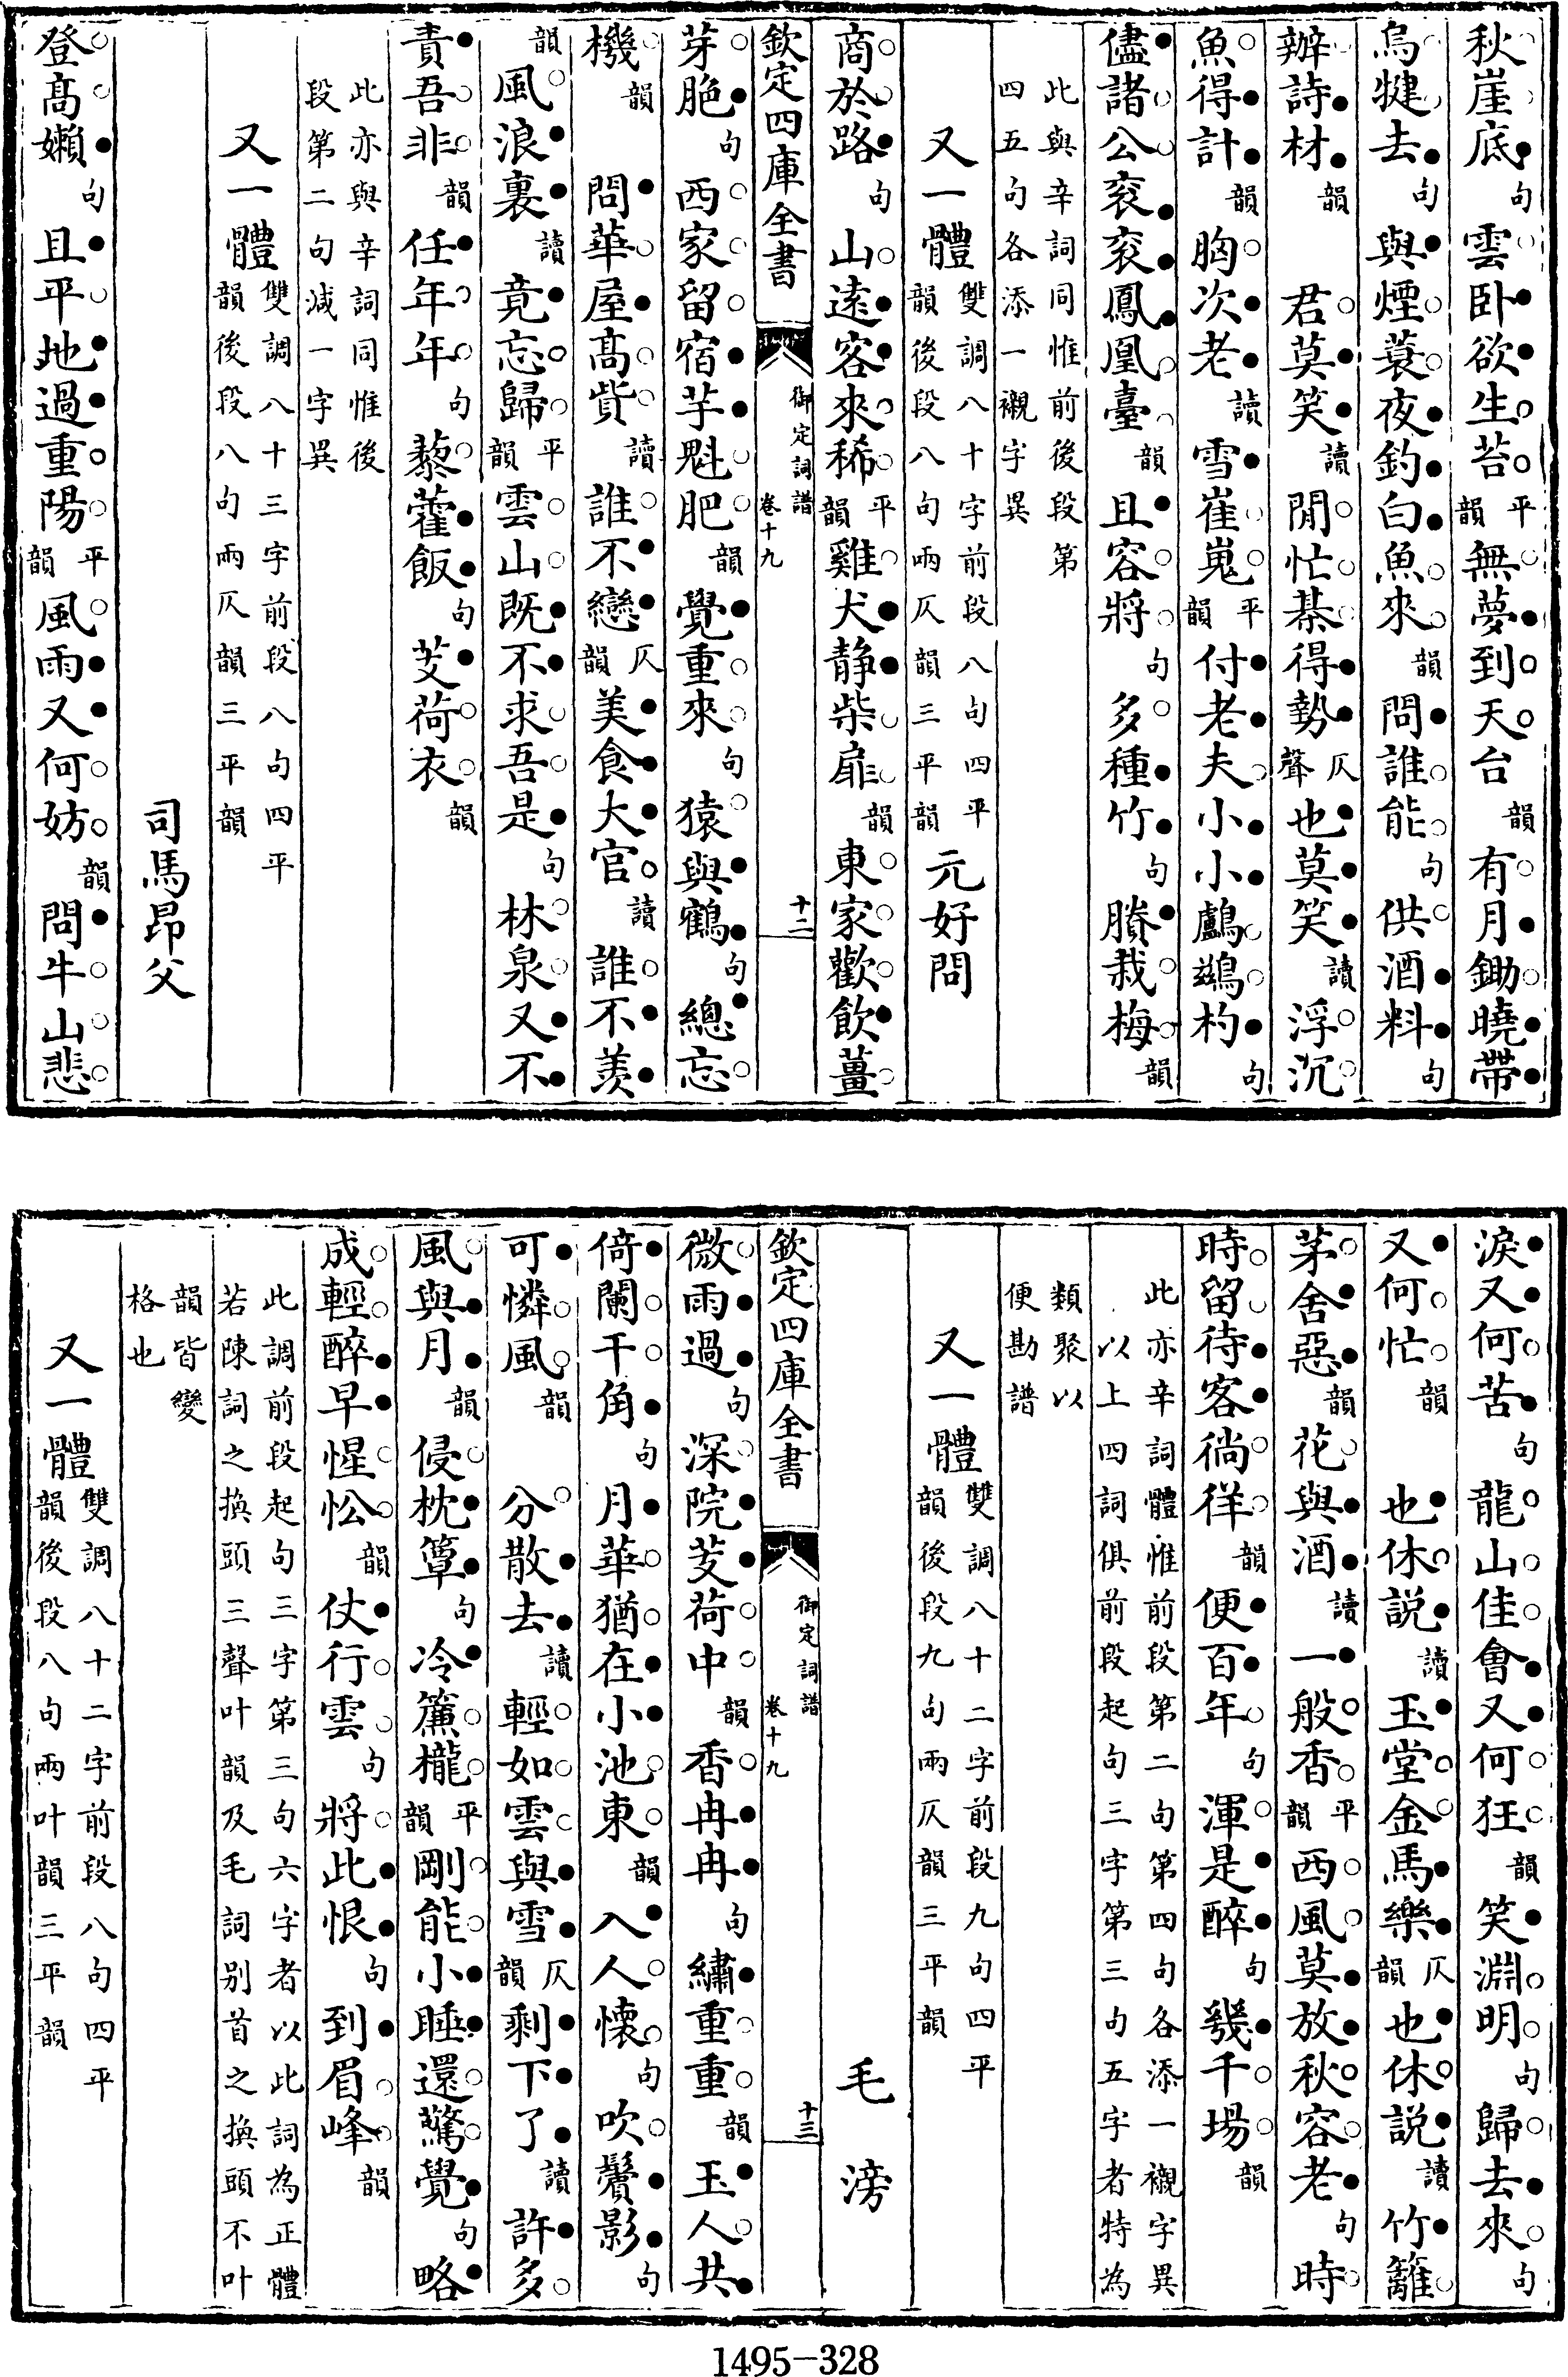 秋崖底句雲卧欲生苔平韻無夢到天台韻有月鋤曉帶
烏犍去句與煙蓑夜釣白魚來韻問誰能句供酒料句
辦詩材韻君莫笑讀閒忙棊得勢仄聲也莫笑讀浮沉
魚得計韻胸次老讀雪崔嵬平韻付老夫小小鸕鷀杓句
儘諸公衮衮鳳凰臺韻且容將句多種竹句賸栽梅韻
此與辛詞同惟前後段第
四五句各添一襯字異
又一體雙調八十三字前段八句四平韻後段八句兩仄韻三平韻元好問
商於路句山遠客來稀平韻雞犬静柴扉韻東家歡飲薑
欽定四庫全書
御定詞譜卷十九
十二
芽脆句西家留宿芋魁肥韻覺重來句猿與鶴句總忘
機韻問華屋高貲讀誰不戀仄韻美食大官讀誰不羨
韻風浪裏讀竟忘歸平韻雲山既不求吾是句林泉又不
責吾非韻任年年句藜藿飯句芰荷衣韻
此亦與辛詞同惟後
段第二句減一字異
又一體雙調八十三字前段八句四平韻後段八句兩仄韻三平韻
司馬昂父
登高嬾句且平地過重陽平韻風雨又何妨韻問牛山悲
淚又何苦句龍山佳會又何狂韻笑淵明句歸去來句
又何忙韻也休説讀玉堂金馬樂仄韻也休説讀竹籬
茅舍惡韻花與酒讀一般香平韻西風莫放秋容老句時
時留待客徜徉韻便百年句渾是醉句幾千場韻
此亦辛詞體惟前段第二句第四句各添一襯字異
以上四詞俱前段起句三字第三句五字者特為
類聚以
便勘譜
又一體雙調八十二字前段九句四平韻後段九句兩仄韻三平韻
毛滂
欽定四庫全書
御定詞譜卷十九
十三
微雨過句深院芰荷中韻香冉冉句繡重重韻玉人共
倚闌干角句月華猶在小池東韻入人懷句吹鬢影句
可憐風韻分散去讀輕如雲與雪仄韻剩下了讀許多
風與月韻侵枕簟句冷簾櫳平韻剛能小睡還驚覺句略
成輕醉早惺忪韻仗行雲句將此恨句到眉峰韻
此調前段起句三字第三句六字者以此詞為正體
若陳詞之換頭三聲叶韻及毛詞别首之換頭不叶
韻皆變
格也
又一體雙調八十二字前段八句四平韻後段八句兩叶韻三平韻
1495-328